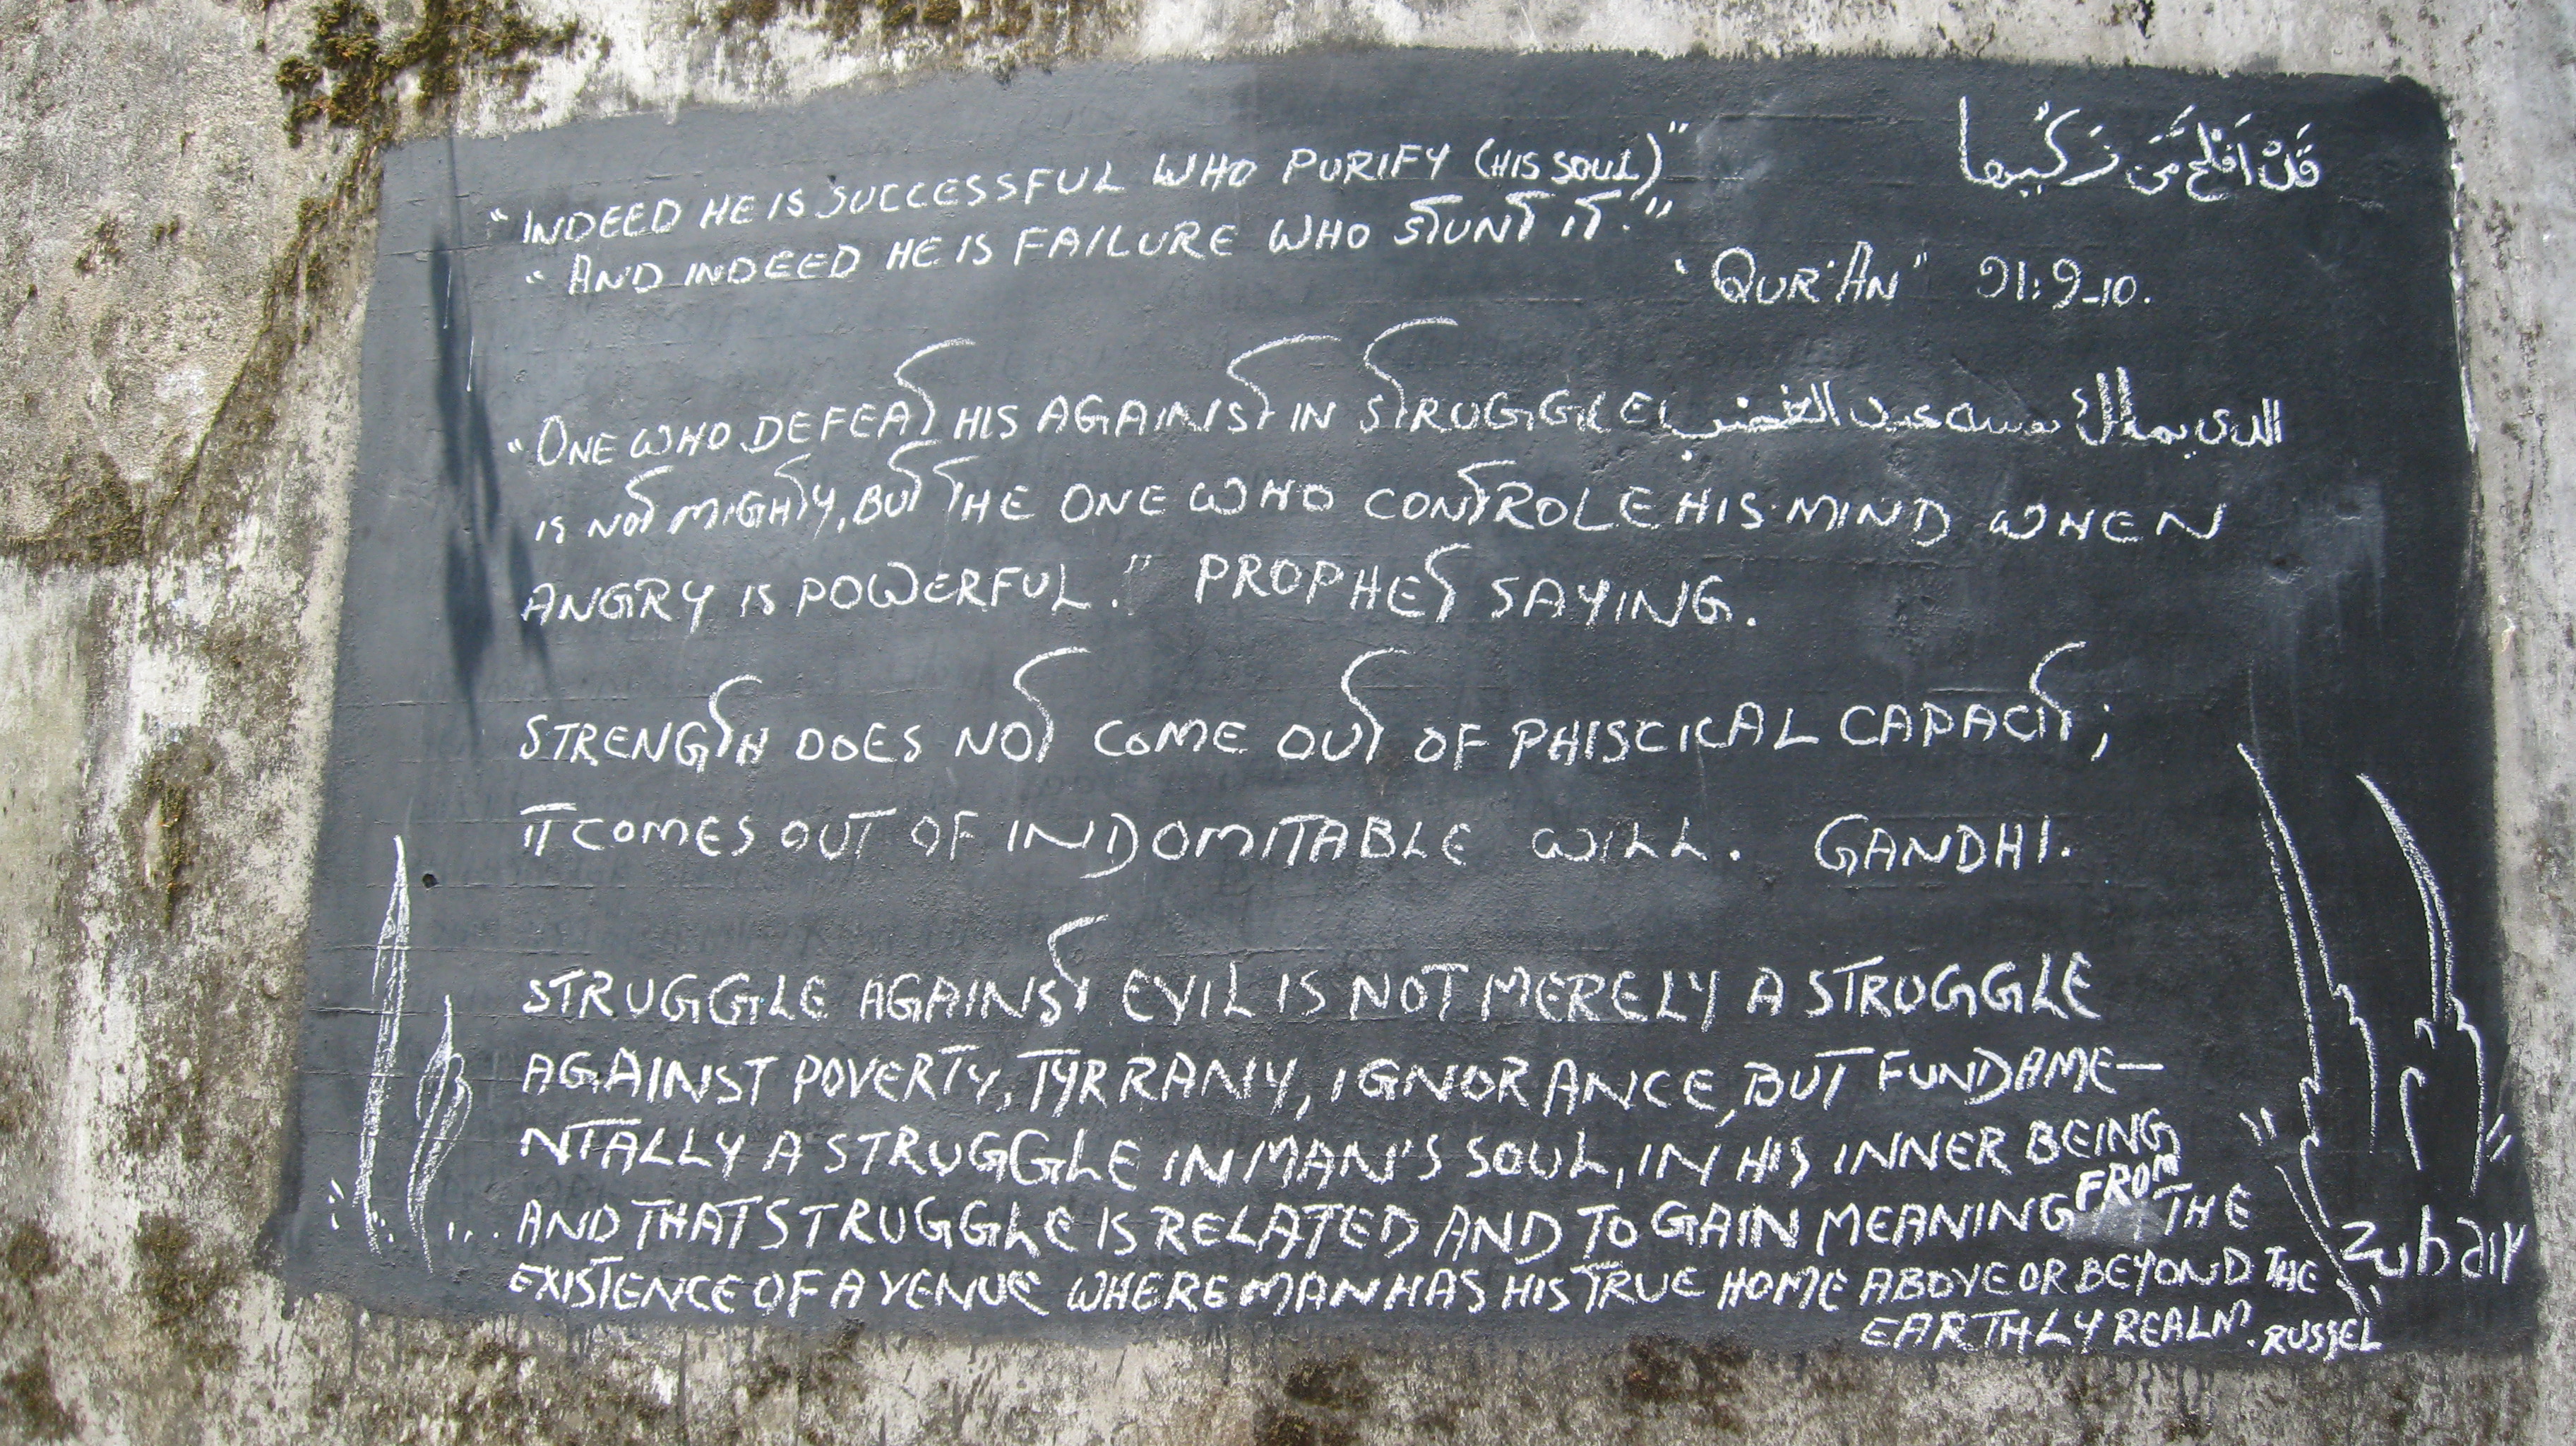 "INDEED HE IS SUCCESSFUL WHO PURIFY (HIS SOUL)" قَدْ اَفْلَحَ مَنْ زَكّٰيها
"AND INDEED HE IS FAILURE WHO STUNT IT."
"QUR'AN" 91:9-10.
"ONE WHO DEFEAT HIS AGAINST IN STRUGGLE الذى يملك نفسه عند الغضب
IS NOT MIGHTY, BUT THE ONE WHO CONTROLE HIS MIND WHEN
ANGRY IS POWERFUL." PROPHET SAYING.
STRENGTH DOES NOT COME OUT OF PHISCICAL CAPACIT;
IT COMES OUT OF INDOMITABLE WILL. GANDHI.
STRUGGLE AGAINST EVIL IS NOT MERELY A STRUGGLE
AGAINST POVERTY, TYRRANY, IGNORANCE, BUT FUNDAME-
NTALLY A STRUGGLE IN MAN'S SOUL, IN HIS INNER BEING
... AND THAT STRUGGLE IS RELATED AND TO GAIN MEANING FROM THE
EXISTENCE OF A VENUE WHERE MAN HAS HIS TRUE HOME ABOVE OR BEYOND THE
EARTHLY REALM. RUSSEL
zubair